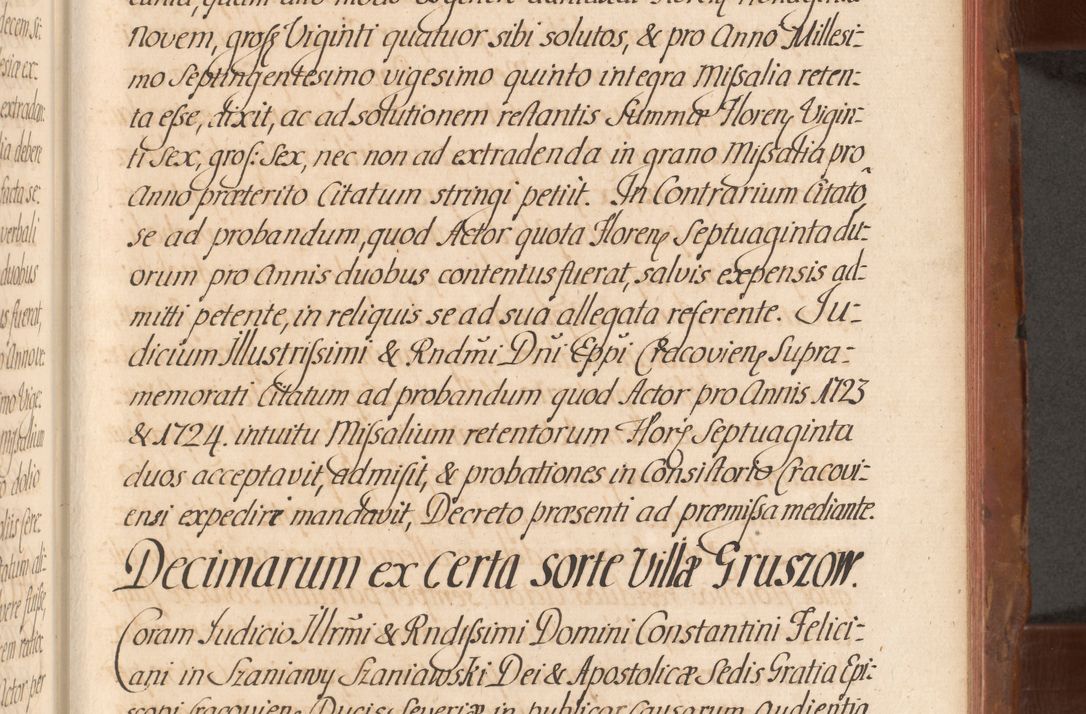 Novem, gross Viginti quatuor sibi solutos, & pro Anno Millesi-
mo Septingentesimo vigesimo quinto integra Missalia reten-
ta esse, dixit, ac ad solutionem restantis Summæ Floren Vigin-
ti Sex, gross: Sex, nec non ad extradenda in grano Missalia pro
Anno præterito Citatum stringi petiit. In Contrarium Citatõ
se ad probandum, quod Actor quota Floren Septuaginta du-
orum pro Annis duobus contentus fuerat, salvis expensis ad-
mitti petente, in reliquis se ad sua allegata referente. Ju-
dicium Illustrissimi & Rndm̃i Dñi Epp̃i Cracovien Supra-
memorati Citatum ad probandum quod Actor pro Annis 1723
& 1724. intuitu Missalium retentorum Flor Septuaginta
duos acceptavit, admisit, & probationes in Consistorio Cracovi-
ensi expedire mandavit, Decreto præsenti ad præmissa mediante.
Decimarum ex certa sorte Villæ Gruszow.
Coram Judicio Illrm̃i & Rndissimi Domini Constantini Felici-
ani in Szaniawy Szaniawski Dei & Apostolicæ Sedis Gratia Epi-
scopi Cracovien Ducis Severiæ in publicor Causarum Audientia
decem si-
esia ex-
extradan-
lia debere
facta se-
verbali
duobus
us fuerat,
Annove
mo Vige-
missalium
dolio
Cere-
ratum ali-
vere
Actor per